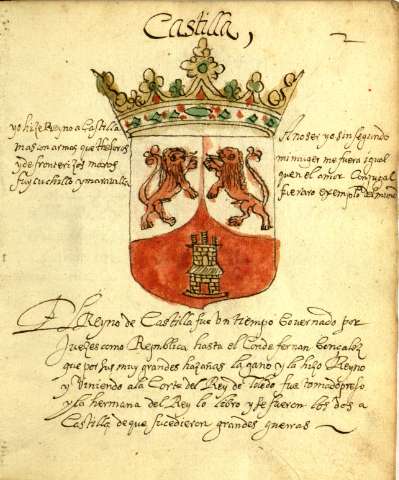 Castilla,
2
yo hize Reyno a Castilla
mas con armas que thesoros
y de fronterizos moros
fuy cuchillo y maravilla
A no ser yo sin segundo
mi muger me fuera igual
que en el amor Conyugal
fue raro exemplo del mundo
El Reyno de Castilla fue Un tiempo Governado por
Juezes como Republica hasta el Conde fernan Gonçalez
que por sus muy grandes hazañas la gano y la hizo Reyno
y Viniendo a la Corte del Rey de toledo fue tomado preso
y la hermana del Rey lo libro y se fueron los dos a
Castilla de que sucedieron grandes guerras